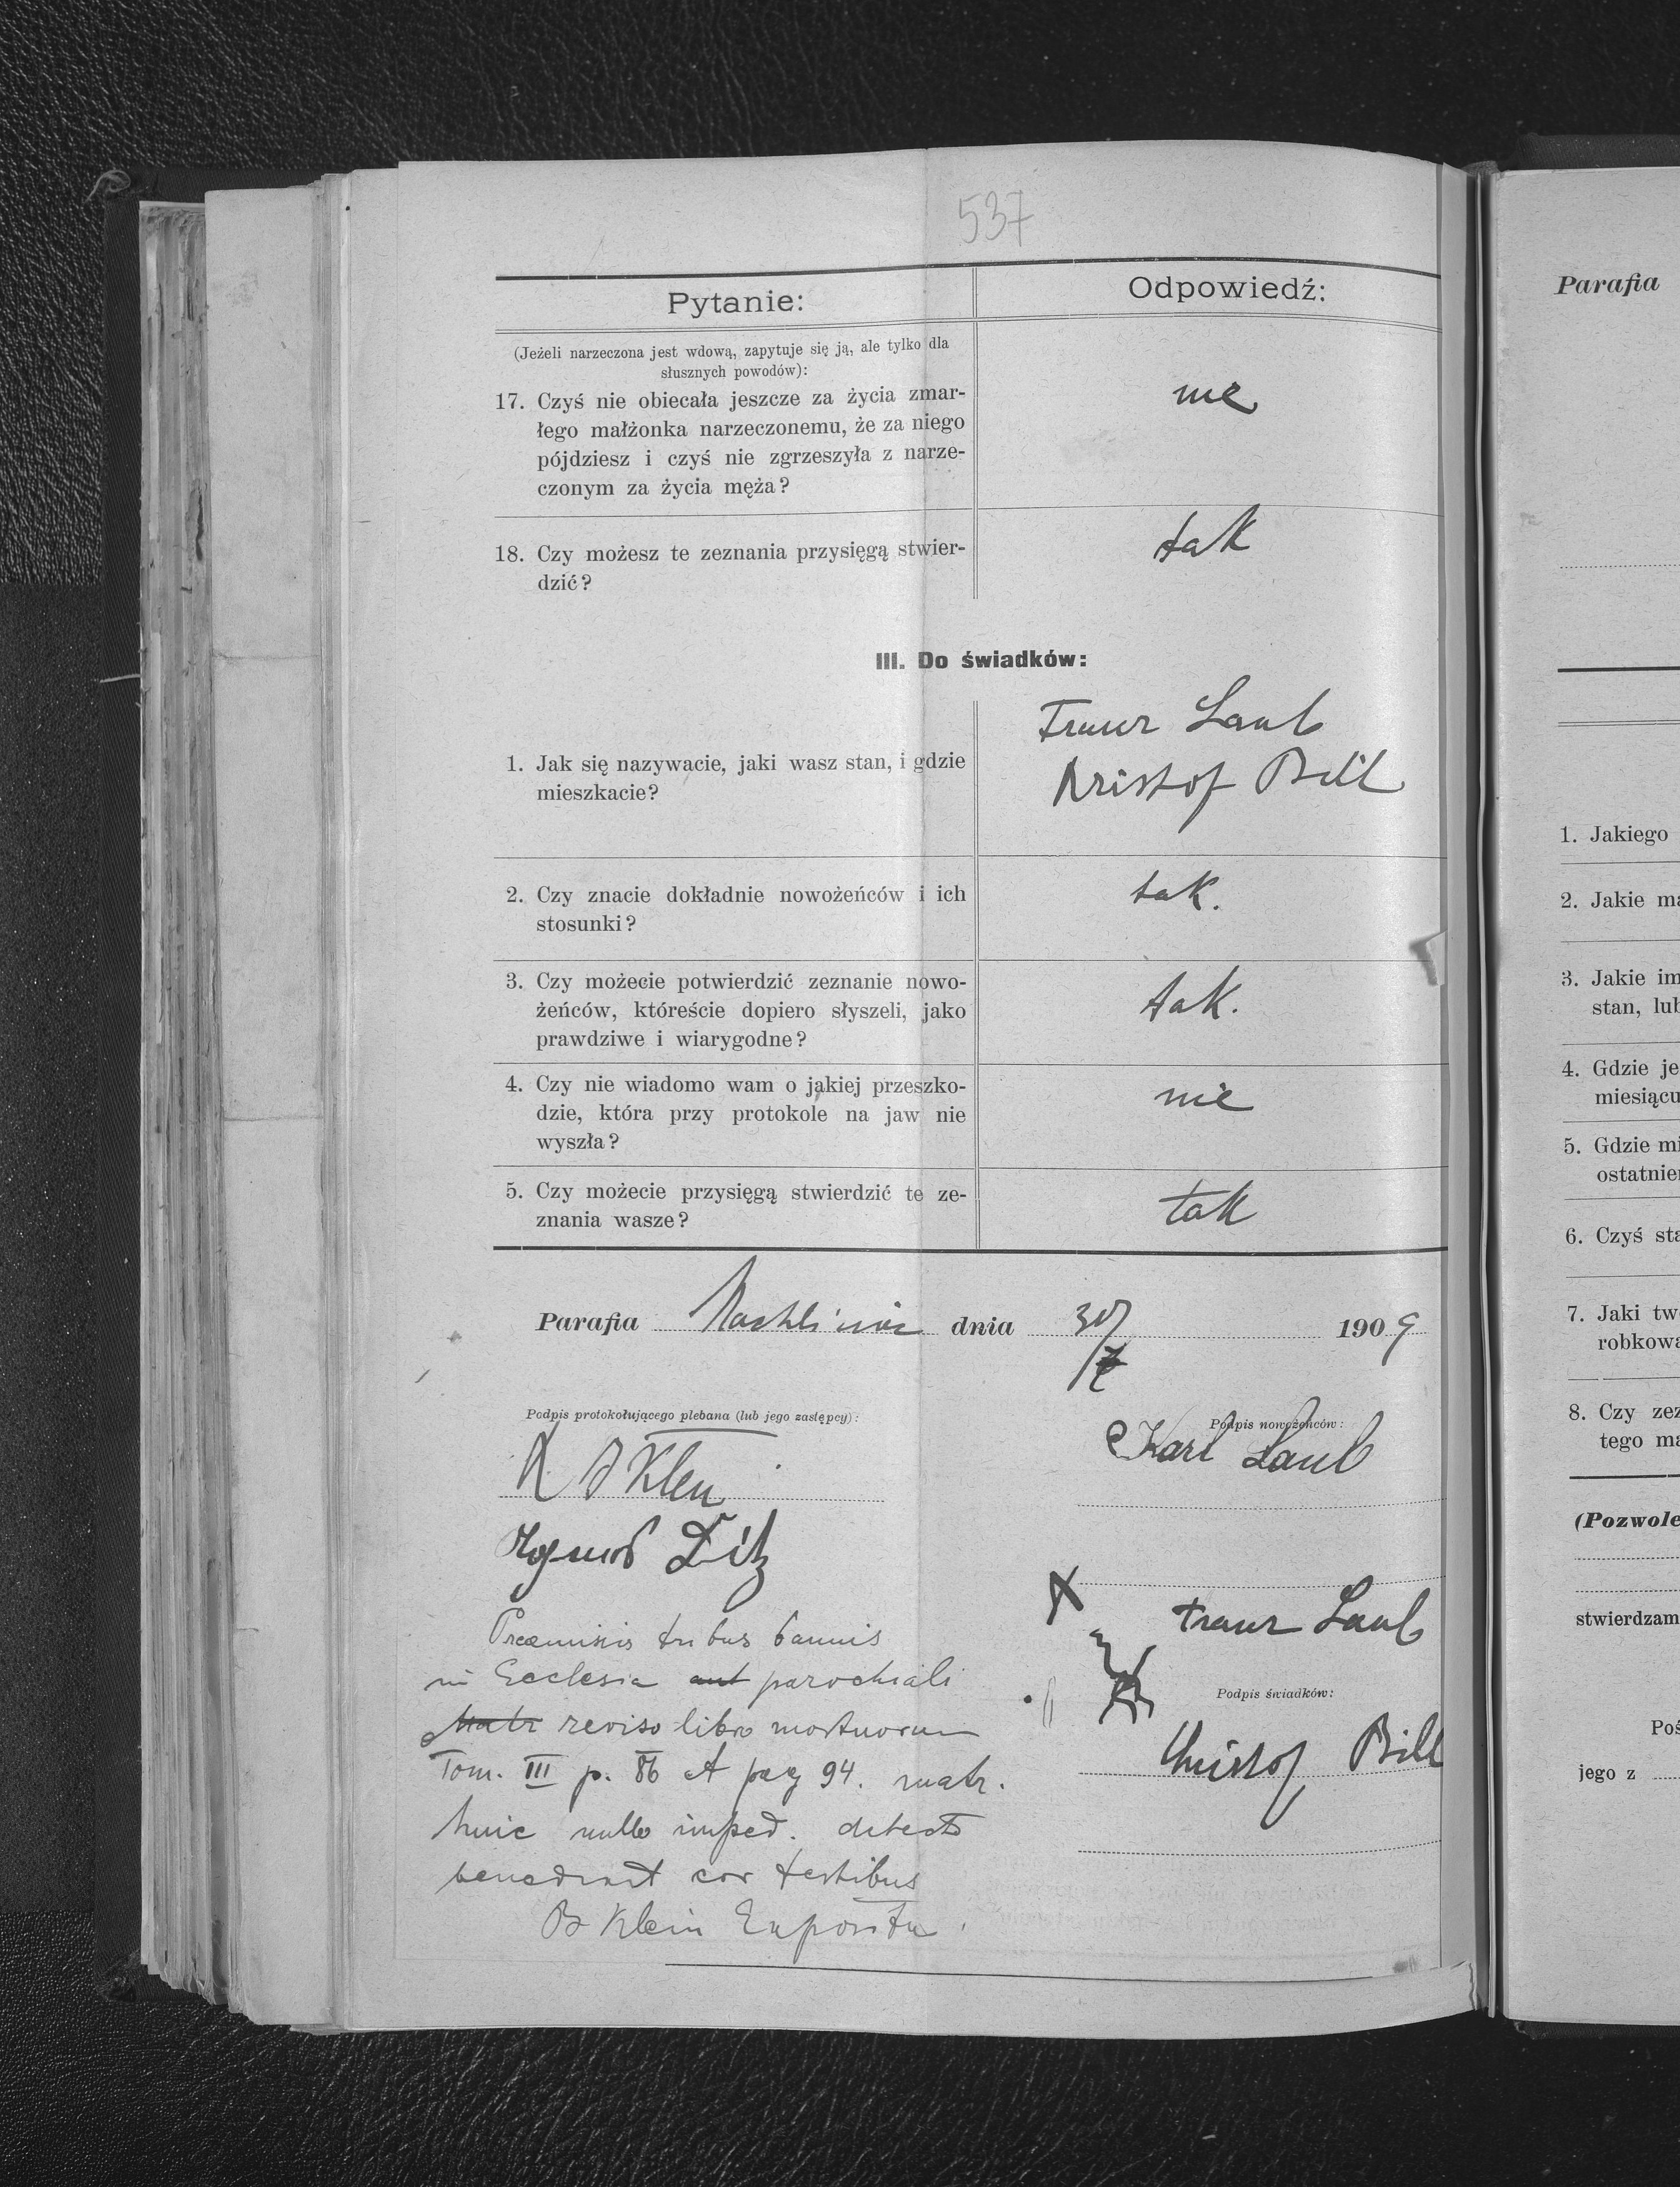 537
Pytanie:
Odpowiedź:
(Jeżeli narzeczona jest wdową, zapytuje się ją, ale tylko dla
słusznych powodów):
17. Czyś nie obiecała jeszcze za życia zmar-
łego małżonka narzeczonemu, że za niego
pójdziesz i czyś nie zgrzeszyła z narze-
czonym za życia męża?
nie
18. Czy możesz te zeznania przysięgą stwier-
dzić?
tak
III. Do świadków:
1. Jak się nazywacie, jaki wasz stan, i gdzie
mieszkacie?
Franz Laub
Kristof Bill
2. Czy znacie dokładnie nowożeńców i ich
stosunki?
tak.
3. Czy możecie potwierdzić zeznanie nowo-
żeńców, któreście dopiero słyszeli, jako
prawdziwe i wiarygodne?
tak.
4. Czy nie wiadomo wam o jakiej przeszko-
dzie, która przy protokole na jaw nie
wyszła?
nie
5. Czy możecie przysięgą stwierdzić te ze-
znania wasze?
tak
Parafia dnia 30/ 1909
Podpis protokołującego plebana (lub jego zastępcy):
Podpis nowożeńców:
Karl Laub
Klein
Franz Laub
Podpis świadków:
Christof Bill
Praemissis tribus bannis
in Ecclesia aut parochiali
Matr reviso libro mortuorum
Tom. III p. 86 et pag 94. matr.
huic nullo imped. detecto
cor testibus
B Klein Expositus
Parafia
1. Jakiego
2. Jakie ma
3. Jakie im
stan, lub
4. Gdzie je
miesiącu
5. Gdzie mi
ostatnie
6. Czyś sta
7. Jaki two
robkowa
8. Czy zez
tego ma
(Pozwole
stwierdzam
Poś
jego z